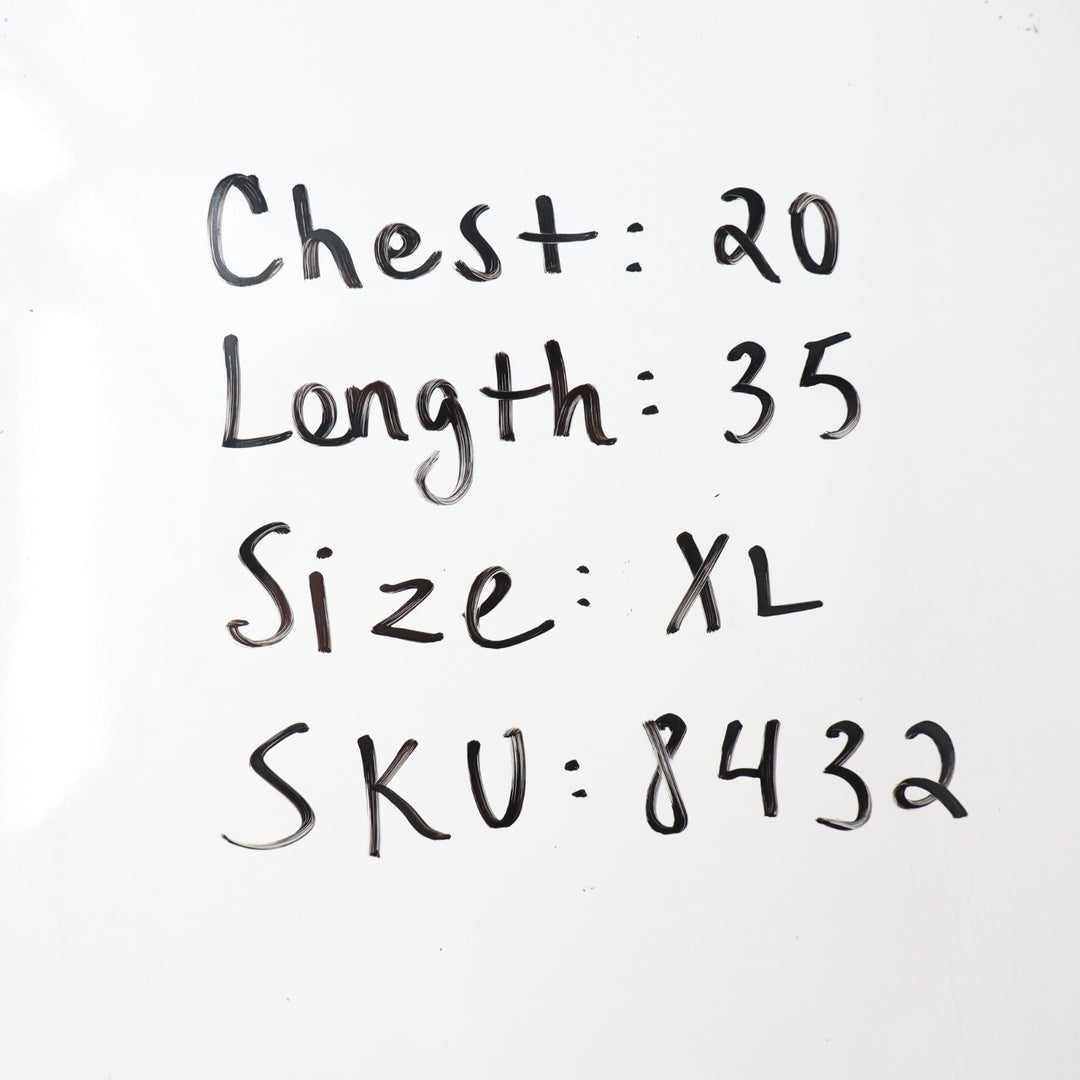 Chest: 20
Length: 35
Size: XL
SKU: 8432